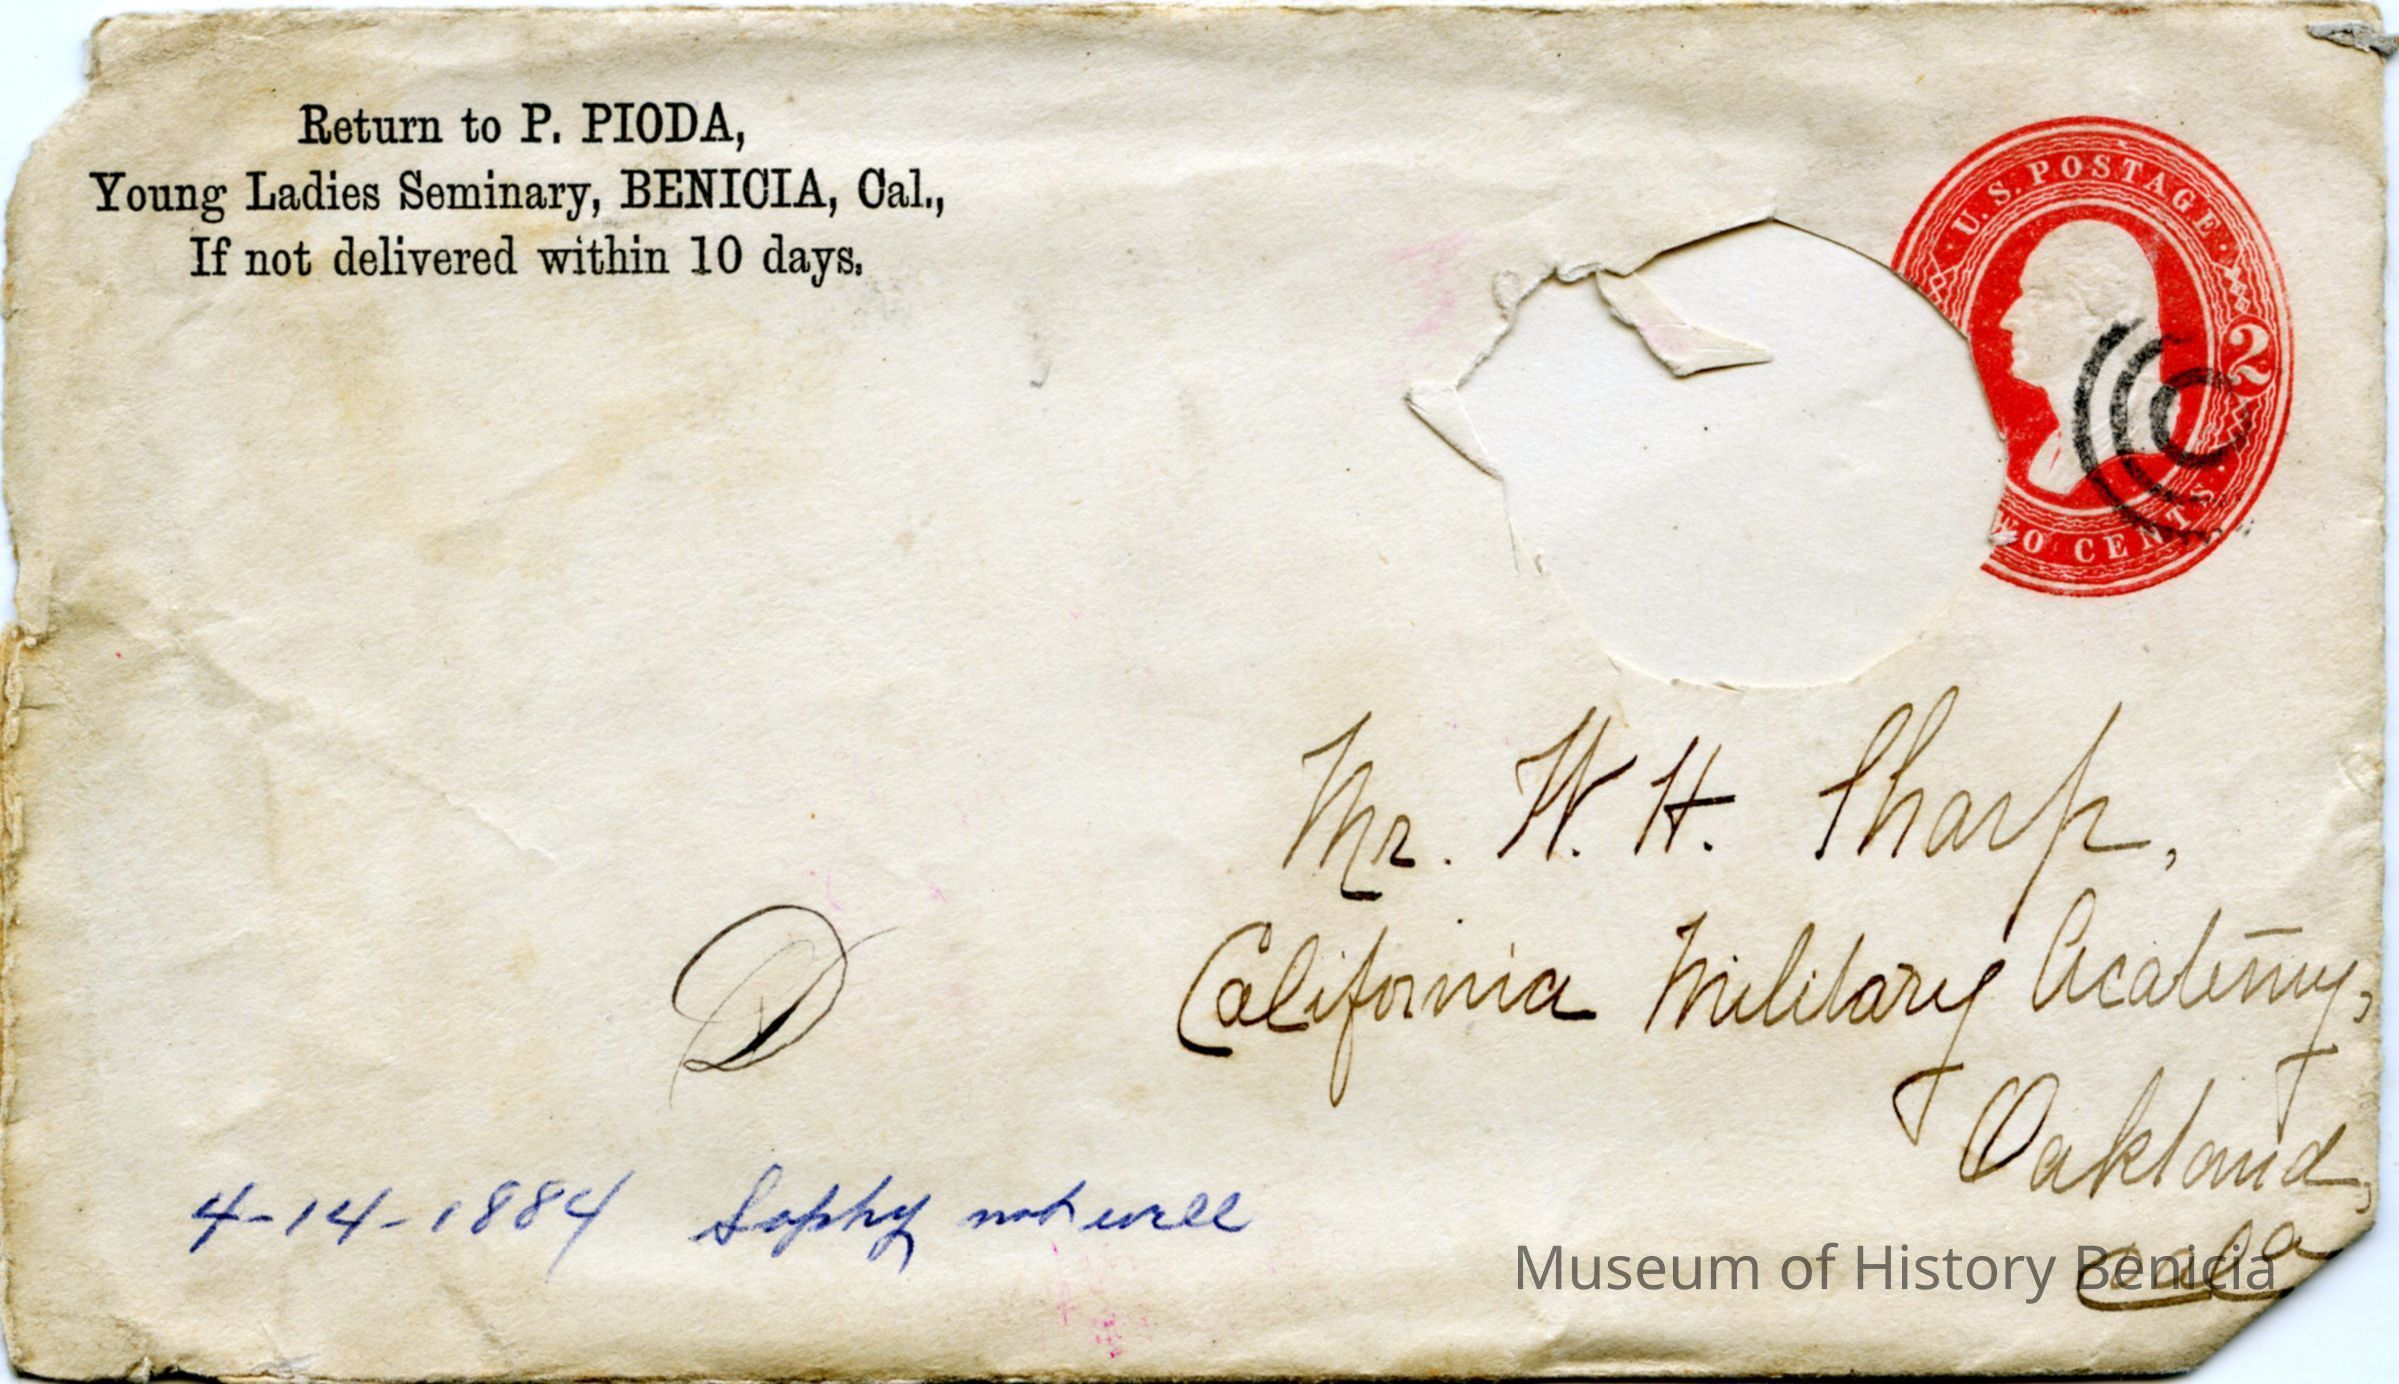 Return to P. PIODA,
Young Ladies Seminary, BENICIA, Cal.,
If not delivered within 10 days.
U.S. POSTAGE
2
WO CENTS
Mr. W. H. Sharp,
California Military Academy,
Oakland,
Cala
D
4-14-1884 Sophy not well
Museum of History Benicia